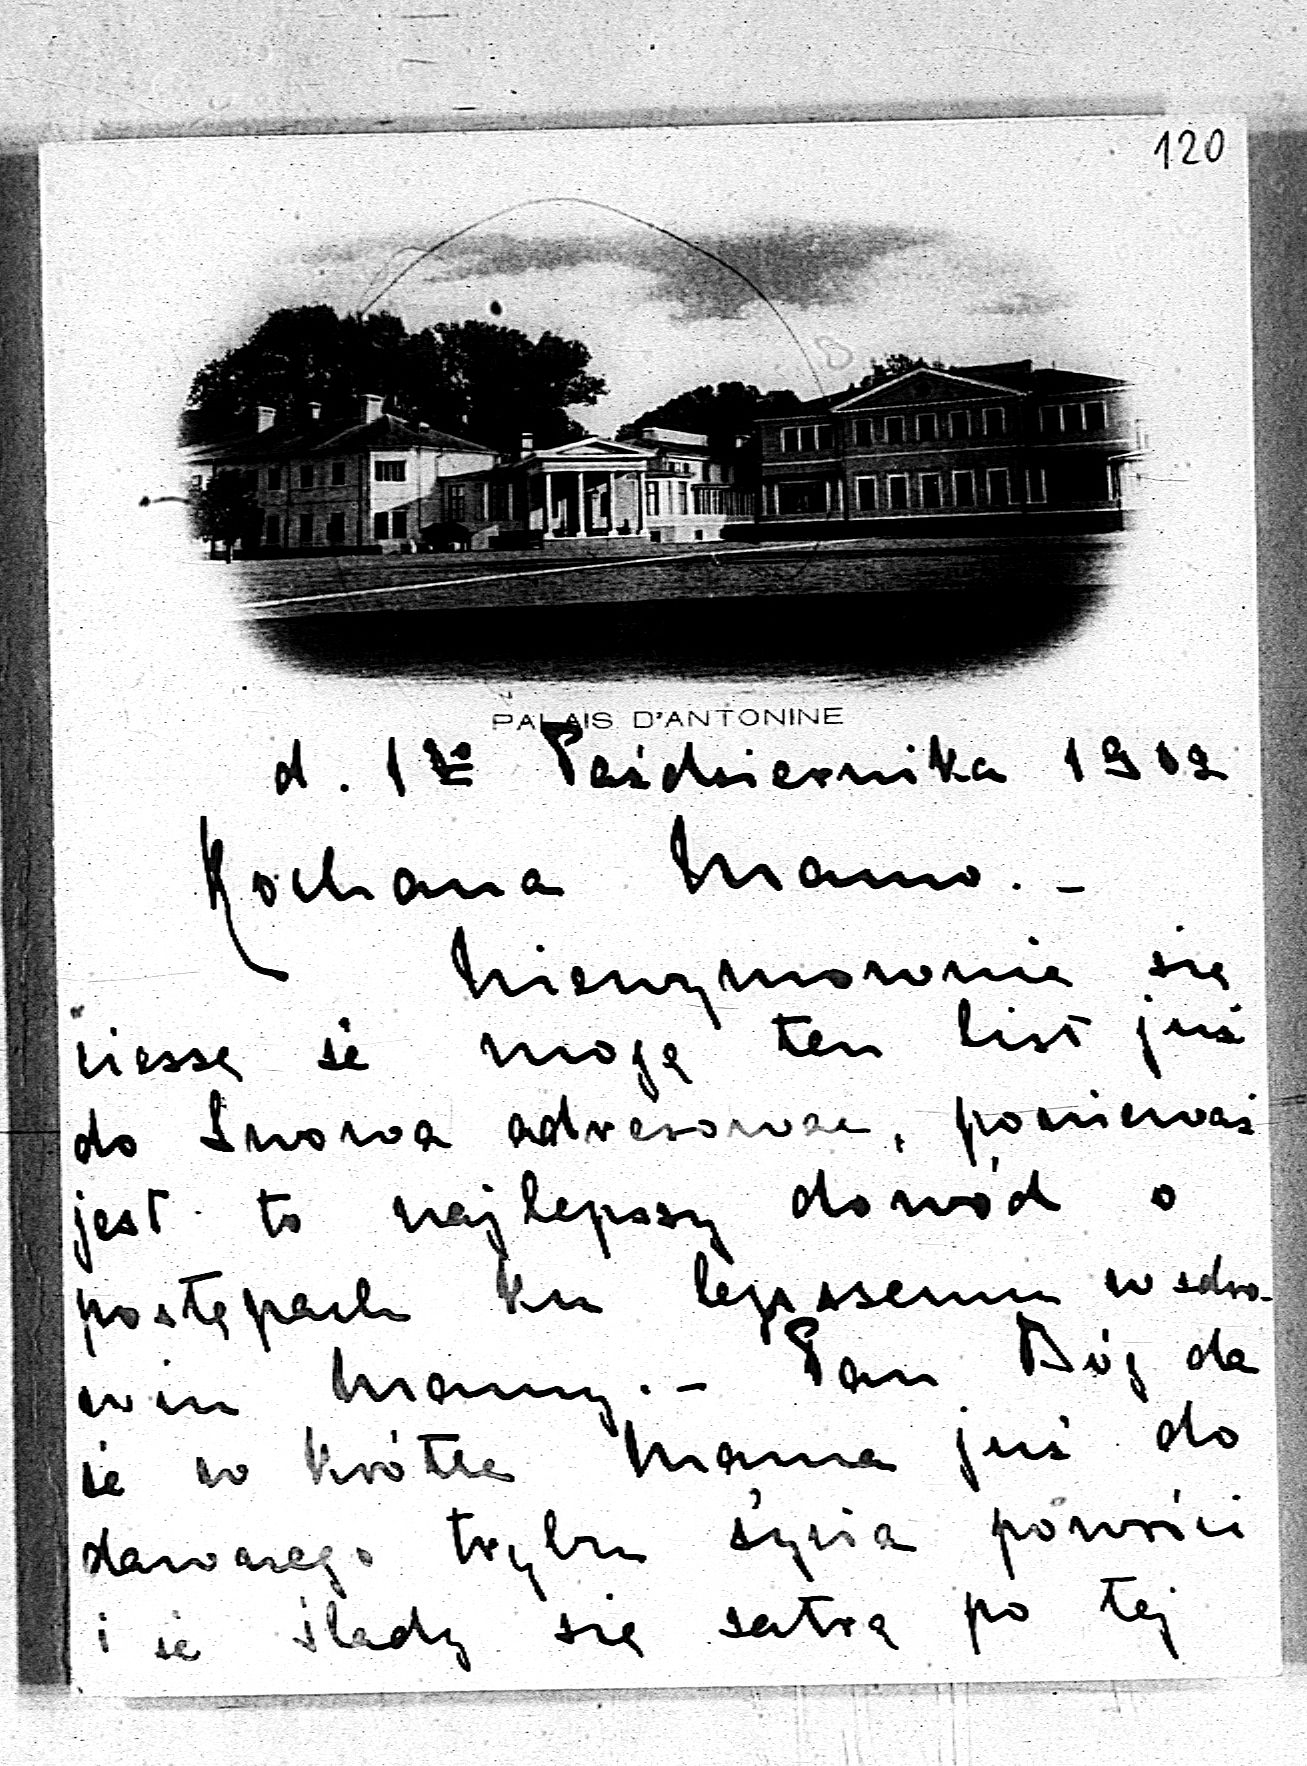 120
PALAIS D'ANTONINE
d. 1go Października 1912
Kochana Mamo. –
Niewymownie się
cieszę że mogę ten list już
do Lwowa adresować, ponieważ
jest to najlepszy dowód o
postępach ku lepszemu w zdro-
wiu Mamy. – Pan Bóg da
że w krótce Mama już do
dawnego trybu życia powróci
i że ślady się zatrą po tej